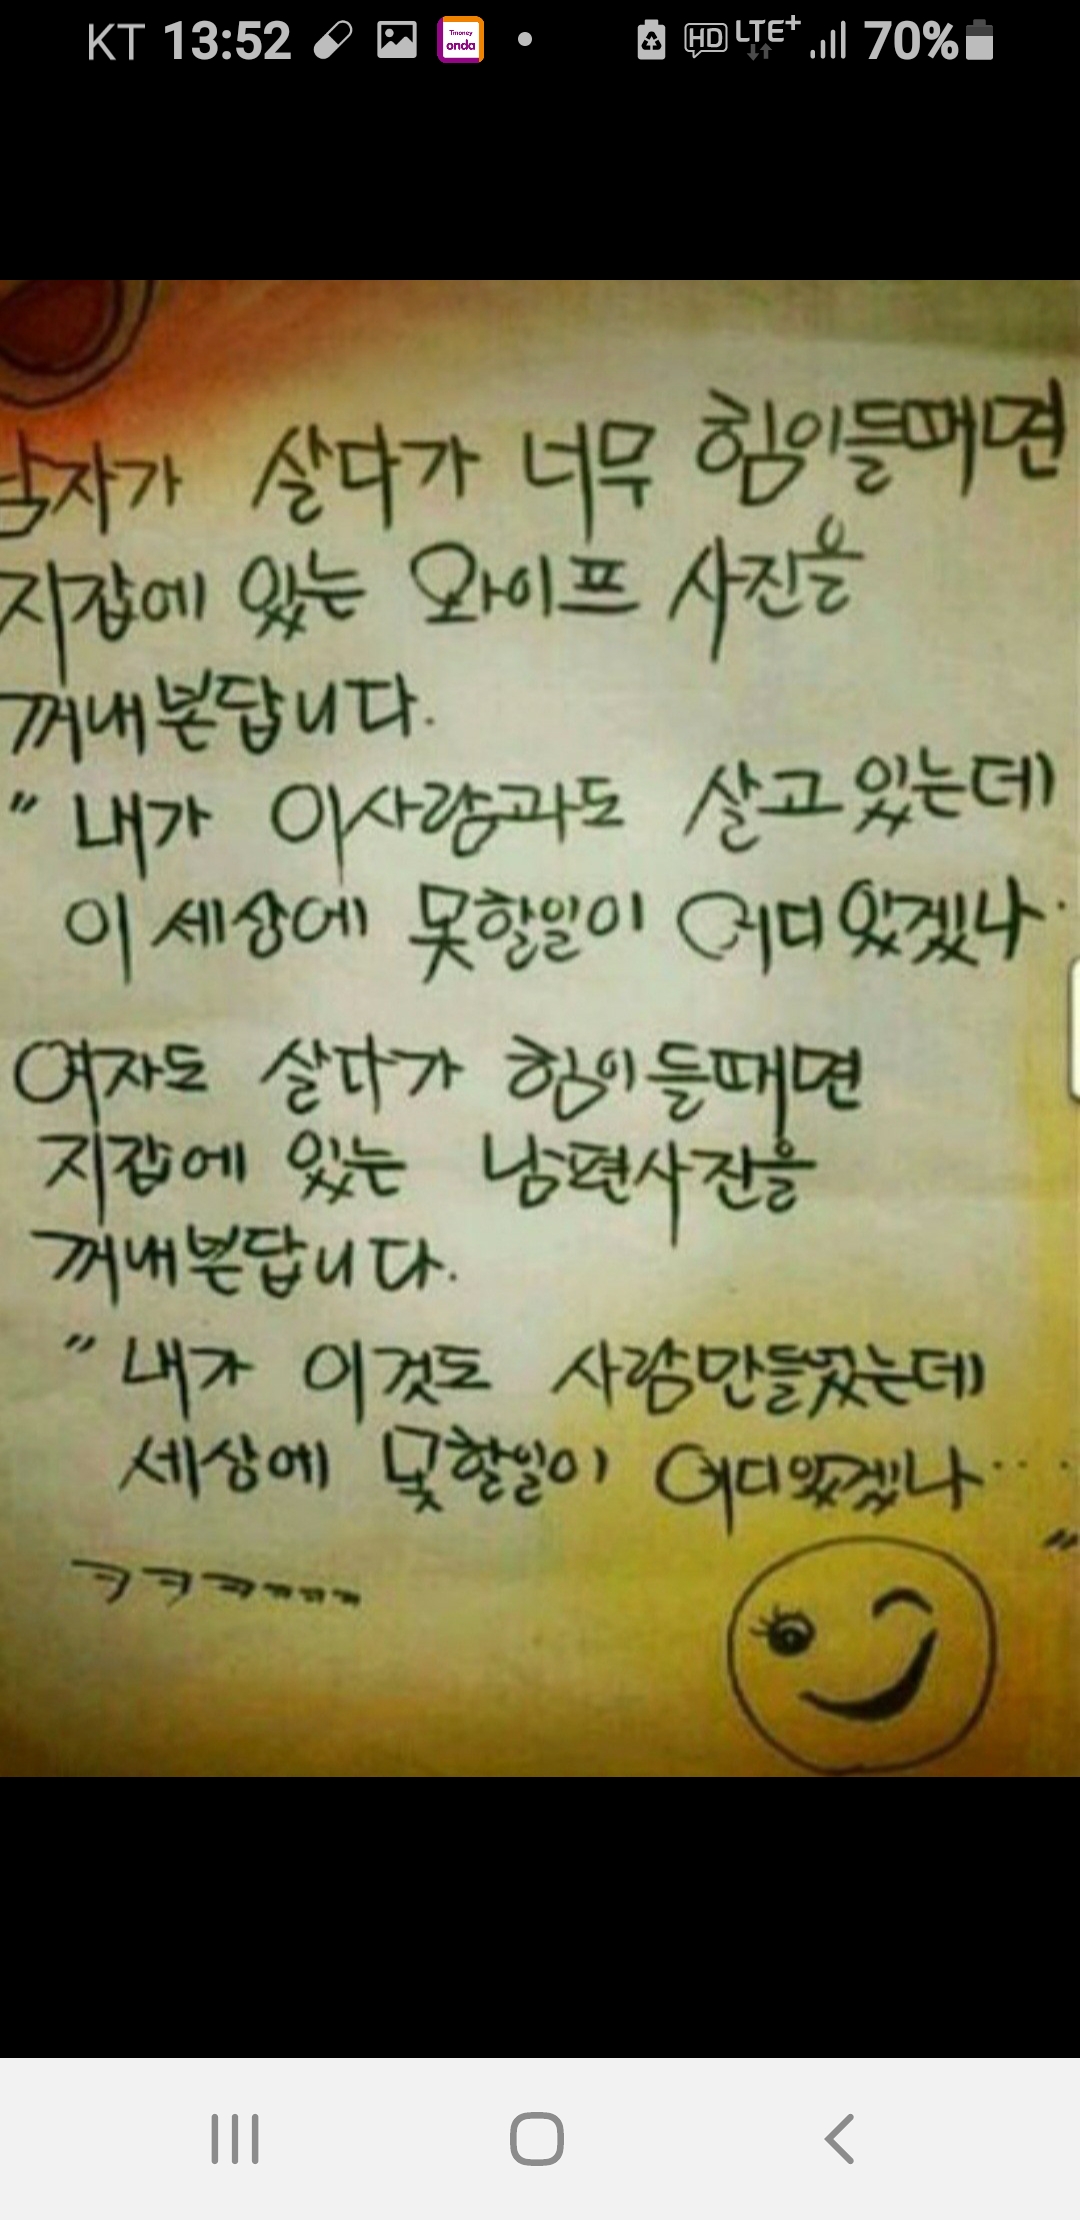 KT 13:52 Tmoney onda HD LTE+ 70%
남자가 살다가 너무 힘이들때면
지갑에 있는 와이프 사진을
꺼내본답니다.
" 내가 이사람과도 살고있는데
이 세상에 못할일이 어디있겠나..
여자도 살다가 힘이들때면
지갑에 있는 남편사진을
꺼내본답니다.
" 내가 이것도 사람만들었는데
세상에 못할일이 어디있겠나... "
ㅋㅋㅋㅋㅋㅋ